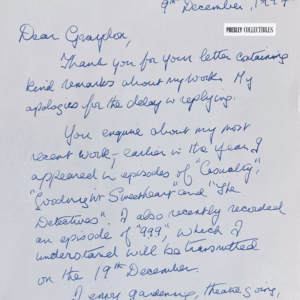 9th December, 1994
PRESLEY COLLECTIBLES
Dear Graydon,
Thank you for your letter containing
kind remarks about my work. My
apologies for the delay in replying.
You enquire about my most
recent work - earlier in the year I
appeared in episodes of "Casualty",
"Goodnight Sweetheart" and "The
Detectives". I also recently recorded
an episode of "999", which I
understand will be transmitted
on the 19th December.
I enjoy gardening, theatre going,